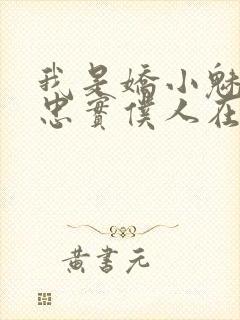 我是嬌小魅
忠實僕人在
黃書元